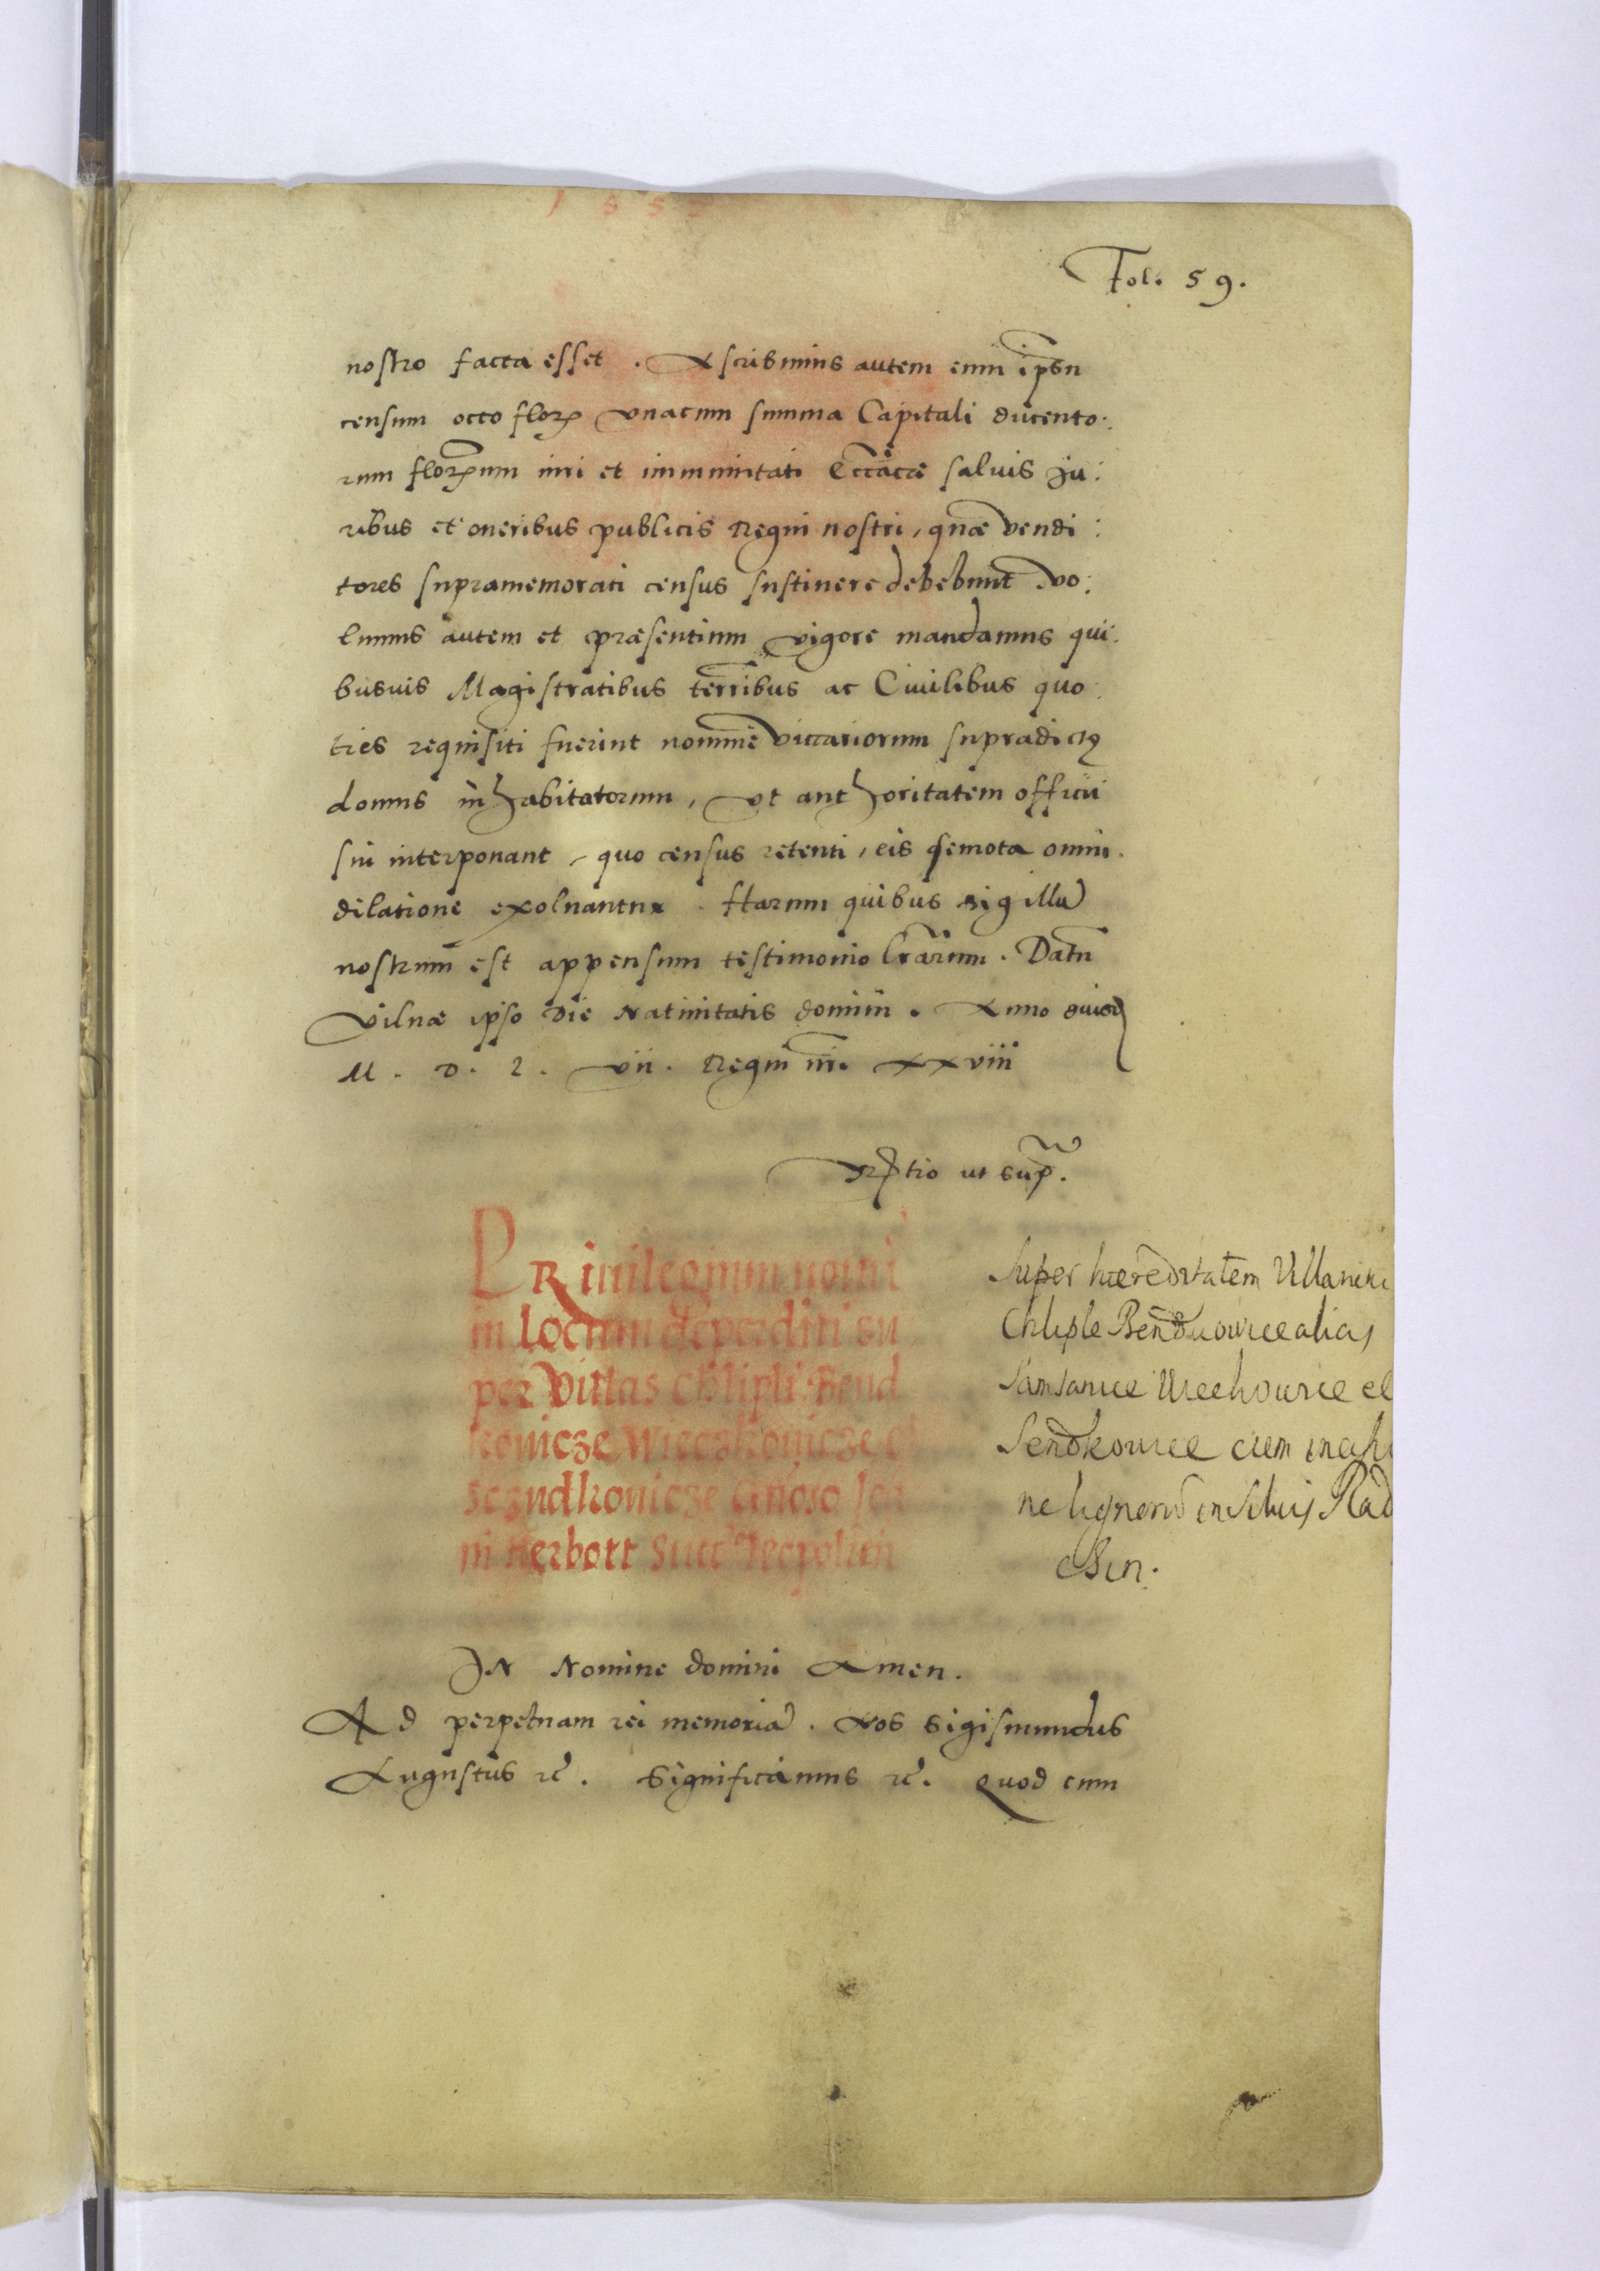 Fol. 59.
nostro facta esset. Ascribimus autem enim ipsũ
censum octo flor. unacum summa Capitali ducento:
rum florenum iuri et immunitati Ecctãcæ salvis Ju:
ribus et oneribus publicis Regni nostri, quæ vendi:
tores supramemorati census sustinere debebunt vo:
lumus autem et præsentium vigore mandamus qui:
busuis Magistratibus terr̃ibus ac Ciuilibus quo:
ties requisiti fuerint nomine viccariorum supradictæ
domus inhabitatorum, ut authoritatem officii
sui interponant, quo census retenti, eis semota omni
dilatione exoluantur. Harum quibus sigillũ
nostrum est appensum testimonio lrãrum. Datũ
Vilnæ ipso die Natiuitatis domini. Anno euisd
M. D. L. vii. Regni nri. xxviii
ut sup̃.
PRiuilegium noui
in Locum deperditi su
per Villas Chlipli: Bend
kouicze Wieczkouicze e
Sczudkouicze Gñoso Joa
ni Herbort Succ
Super hæreditatem Villarum
Chliple Benduowice alias
Samsanice Wiechowice et
Sendkowice cum incisio
ne lignorũ in Siluis Rad
In Nomine domini Amen.
Ad perpetuam rei memoriã. Nos Sigismundus
Augustus rc̃. Significamus rc̃. Quod cum